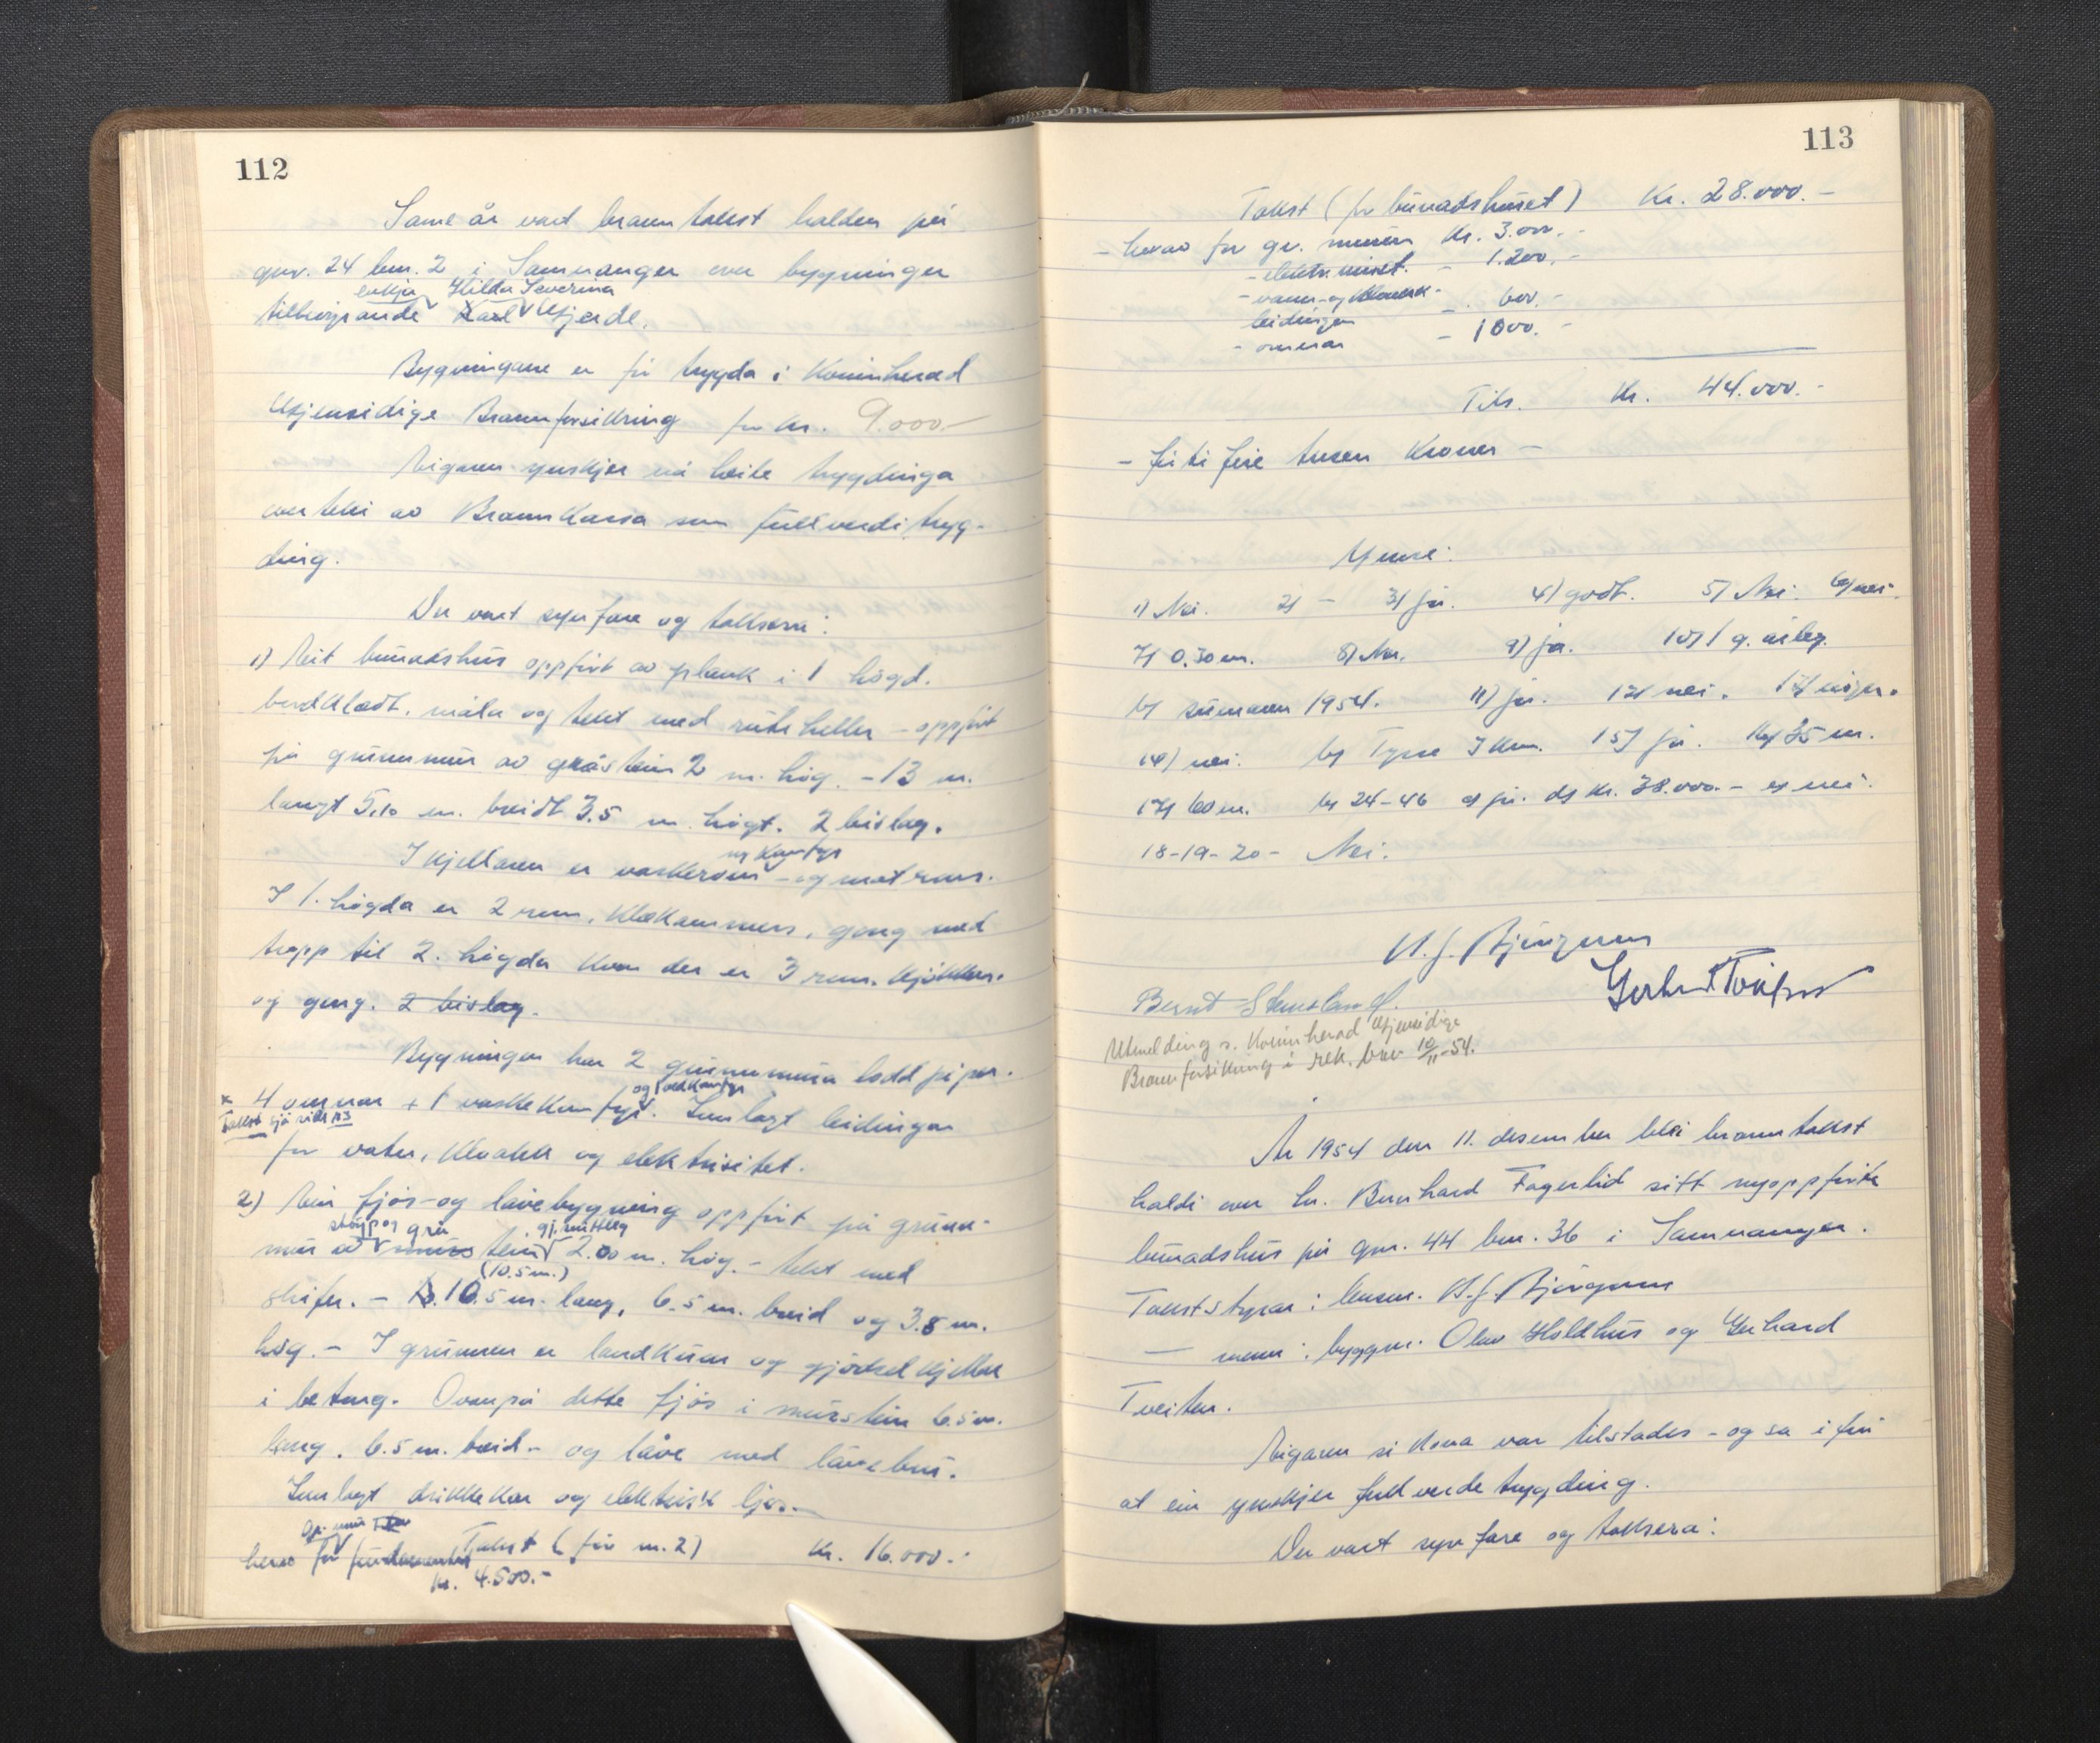 112
Same år vart branntakst halden på
gnr. 24 bnr. 2 i Samnanger over bygningar
enkja Hilda Severina
tilhøyrande Karl Gjerde.
Bygningane er før trygda i Kvinnherad
Gjensidige Brannforsikring for kr. 9.000.-
Eigaren ynskjer nå heile trygdinga
overteki av Brannkassa som fullverditryg-
ding.
Du vart synfare og taksera:
1) Eit bunadshus oppført av plank i 1 høgd.
bordklædt, måla og tekt med ruteheller - oppført
på grunnmur av gråstein 2 m. høg. - 13 m.
langt 5.10 m. breidt 3.5 m. høgt. 2 bislag.
og komfyr
I kjellaren er vaskerom - og matrom.
I 1. høgda er 2 rom, klekammers, gang med
trapp til 2. høgda kvar der er 3 rom. kjøkken.
og gang. 2 bislag.
Bygningen har 2 grunnmura lodd piper.
og vedkomfyr
x 4 omnar + 1 vaskekomfyr. Innlagt leidingar
Takst sjå side 113
for vatn, kloakk og elektrisitet.
2) Ein fjøs- og løebygning oppført på grunn-
støyp og grå gj.snittleg
mur av murs tein 2.00 m. høg. - tekt med
(10.5 m.)
skifer. - 10.5 m. lang, 6.5 m. breid og 3.8 m.
høg. - I grunnen er landkum og gjødselkjellar
i betong. Ovanpå dette fjøs i murstein 6.5 m.
lang. 6.5 m. breid - og låve med låvebru.
Innlagt drikkekar og elektrisk ljos.
gr. mur
Takst (for nr. 2) kr. 16.000.-
herav for fundamenter
kr. 4.500.-
113
Takst (for bunadshuset) Kr. 28.000.-
- herav for gr. muren kr. 3.000.-
- elektr. - 1.200.-
- vann- og kloakk-
leidingar - 600.-
- omnar - 1000.-
Tils. kr. 44.000.-
- førti fire tusen kroner -
Ymse:
1) Nei. 2) - 3) ja. 4) godt. 5) Nei. 6) nei.
7) 0.30 m. 8) Nei. 9) ja. 10) 1 g. årleg.
b) sumaren 1954. 11) ja. 12) nei. 13) ingen.
14) nei. b) Tysse 3 km. 15) ja. 16) 35 m.
17) 60 m. b) 24-46 c) ja. d) kr. 38.000.- e) nei.
18-19-20- Nei.
Utmelding s. Kvinnherad Gjensidige
Brannforsikring i rek. brev 10/11-54.
År 1954 den 11. desember blei branntakst
haldi over hr. Bernhard Fagerlid sitt nyoppførte
bunadshus på gnr. 44 bnr. 36 i Samnanger.
Takststyrar: lensm.
— menn: byggm. Olav Holdhus og Gerhard
Tveiten.
Eigaren si kona var tilstades - og sa i frå
at ein ynskjer fullverde trygding.
Du vart synfare og taksera: